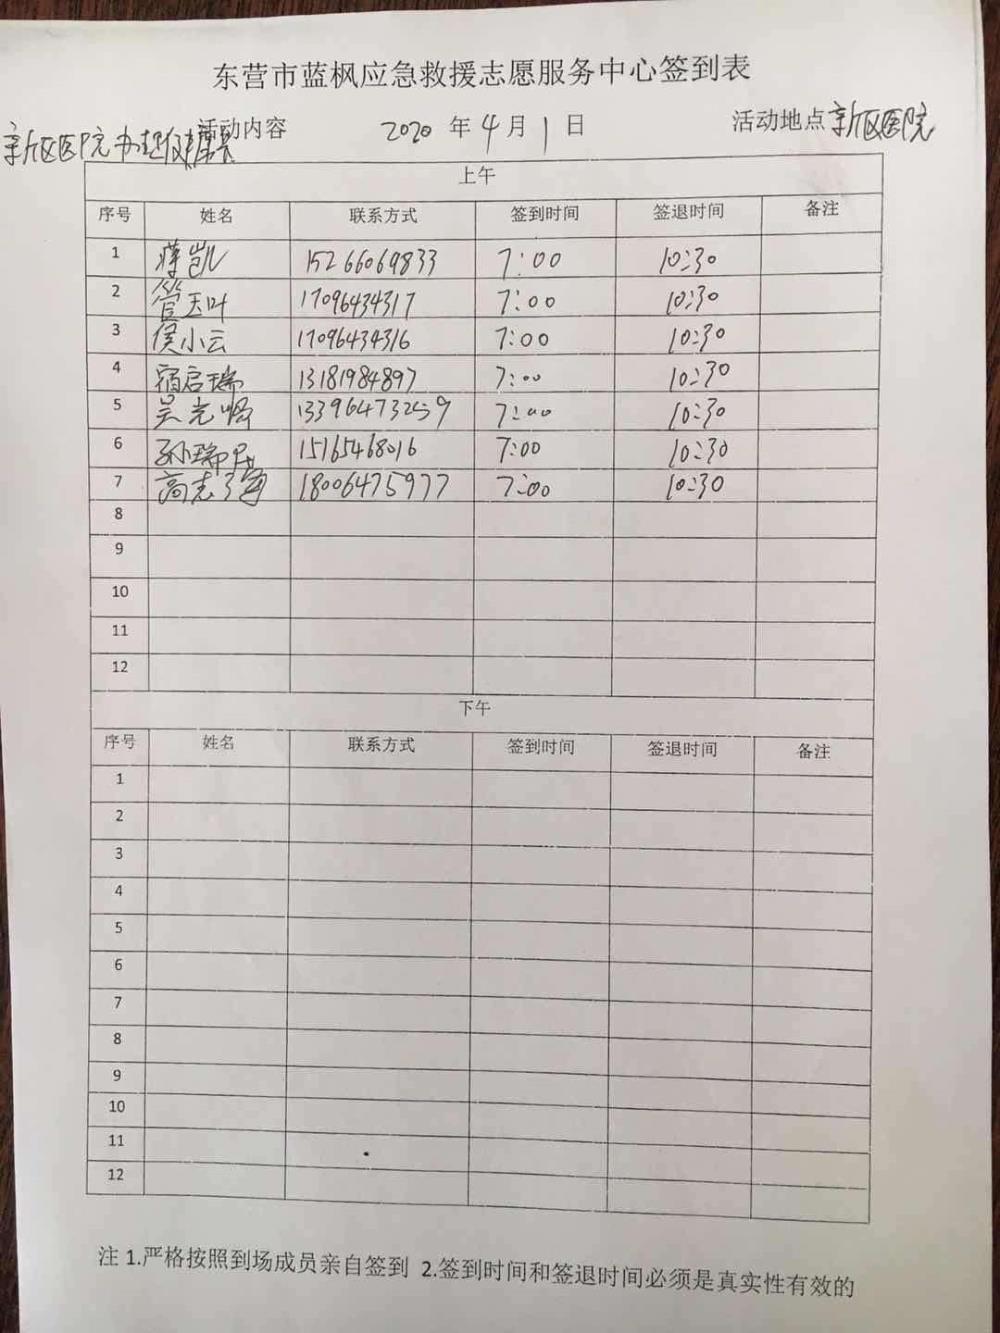 东营市蓝枫应急救援志愿服务中心签到表
活动内容 2020 年 4 月 1 日 活动地点 新区医院
新区医院办理健康
上午
序号 姓名 联系方式 签到时间 签退时间 备注
1 蒋凯 15266069833 7:00 10:30
2 管玉叶 17096434317 7:00 10:30
3 侯小云 17096434316 7:00 10:30
4 宿启瑞 13181984897 7:00 10:30
5 吴光 13396473259 7:00 10:30
6 孙瑞 15165468016 7:00 10:30
7 高志 18006475977 7:00 10:30
8
9
10
11
12
下午
序号 姓名 联系方式 签到时间 签退时间 备注
1
2
3
4
5
6
7
8
9
10
11
12
注 1.严格按照到场成员亲自签到 2.签到时间和签退时间必须是真实性有效的